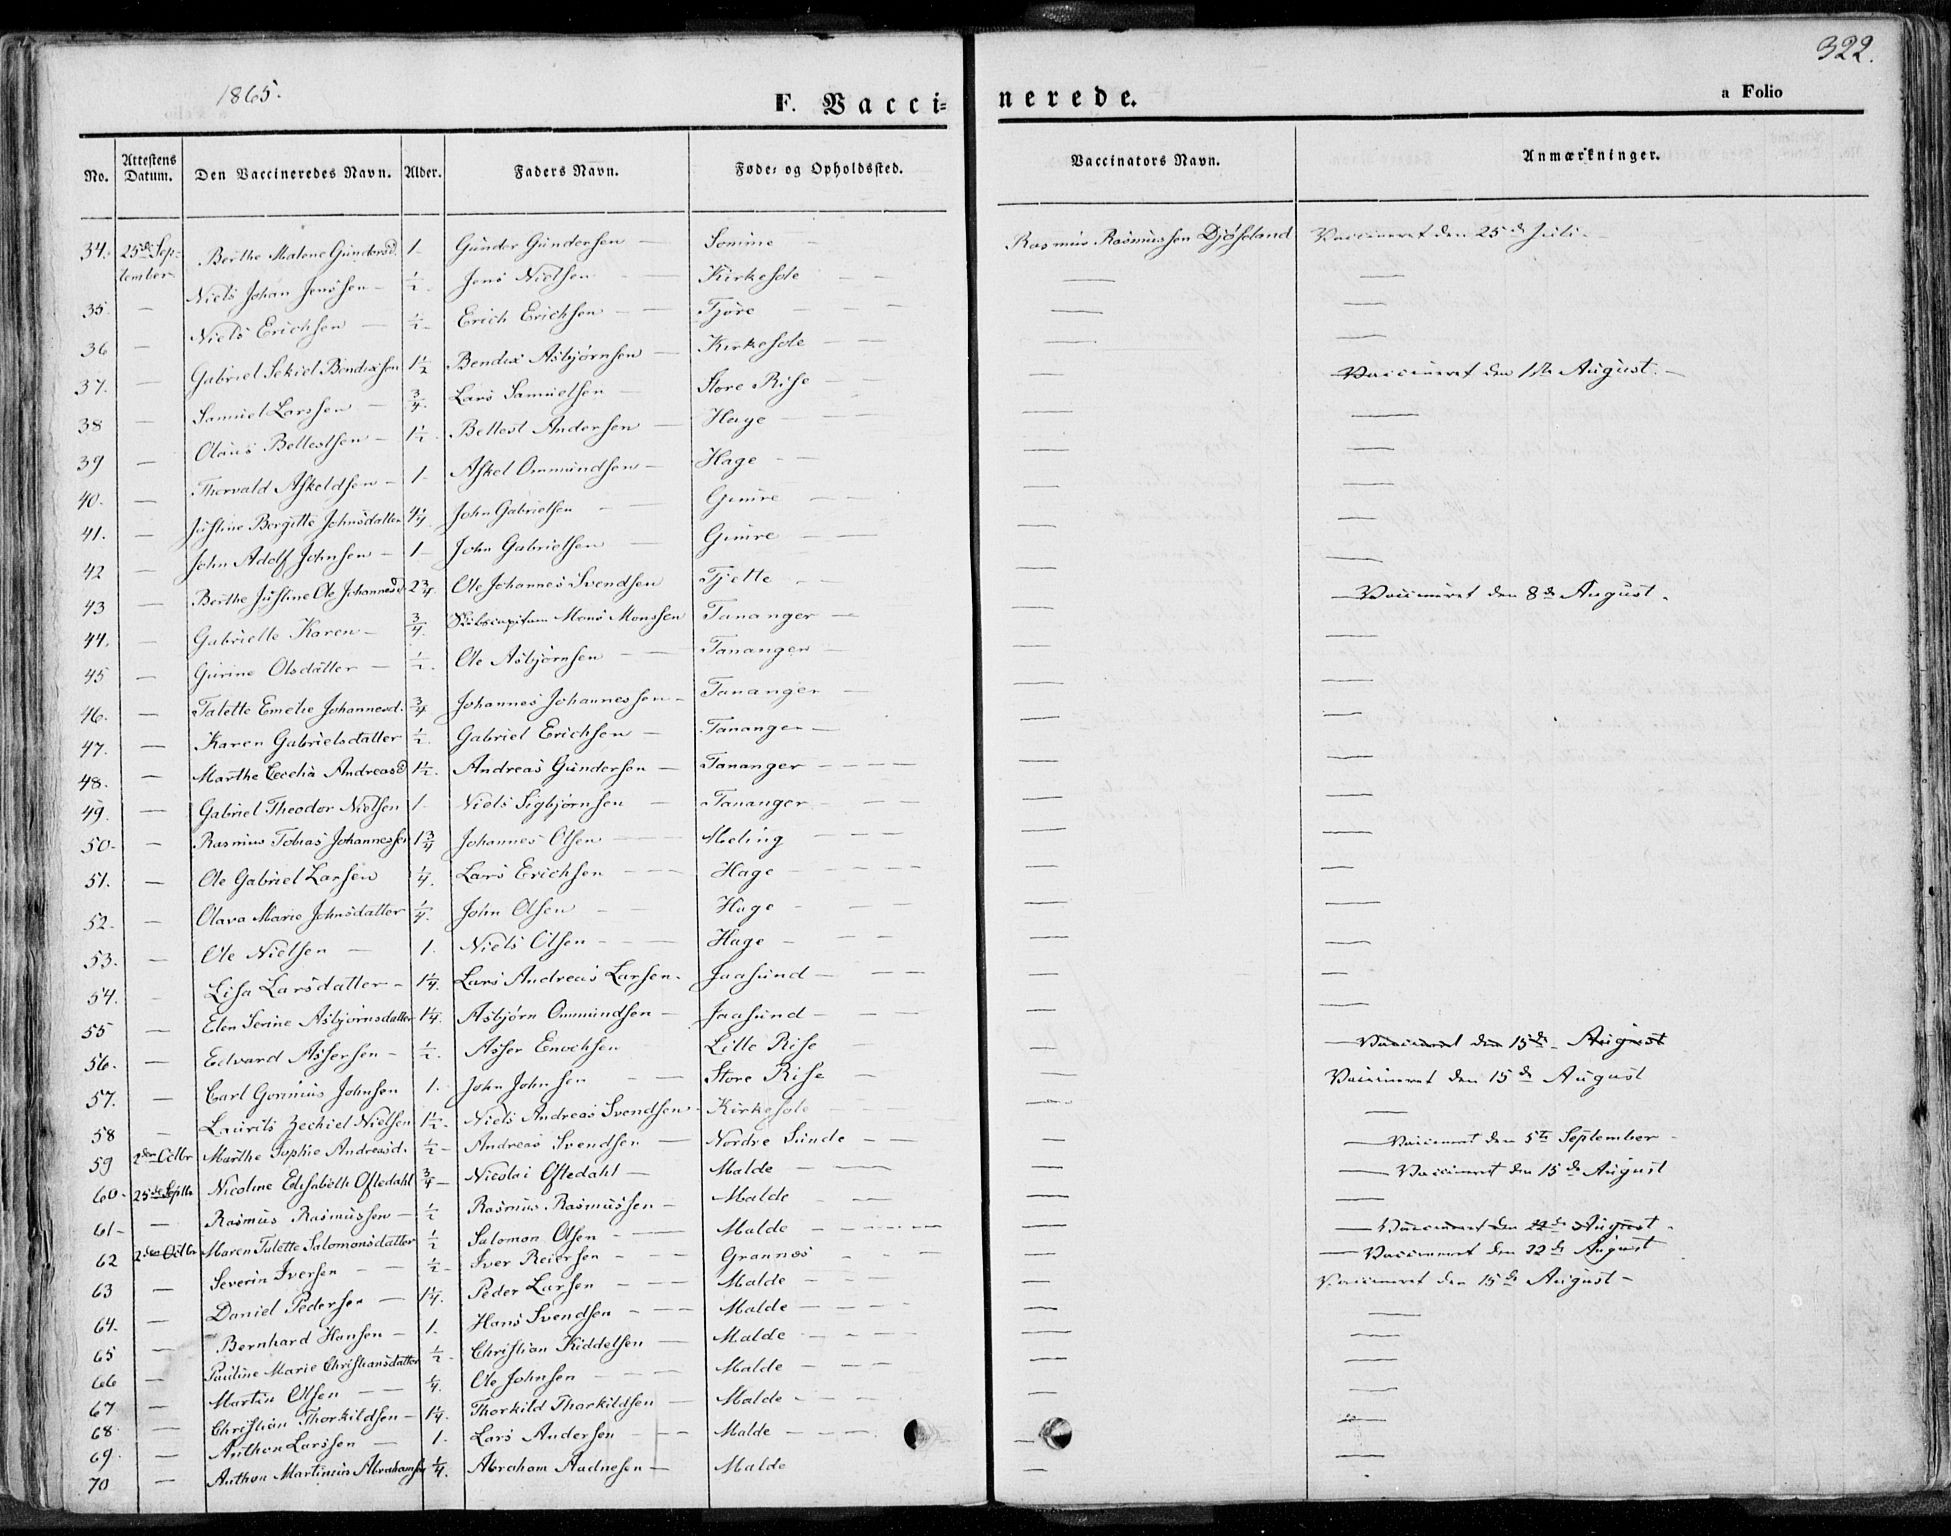 1865.
322.
F. Vacci=
nerede.
a Folio
No. Attestens Datum. Den Vaccineredes Navn. Alder. Faders Navn. Føde= og Opholdssted. Vaccinators Navn. Anmærkninger.
34. 25de Sep-tember Berthe Malene Gundersd. 1 Gunder Gundersen — Sømme Rasmus Rasmussen Vaccineret den 25de Juli
35. — Niels Johan Jensen — ½ Jens Nielsen — Kirkesole — —
36 — Niels Erichsen — ½ Erich Erichsen — Tjøre — —
37. — Gabriel Sekiel Bendixsen 1½ Bendix Asbjørnsen — Kirkesole — —
38 — Samuel Larssen — ¾ Lars Samuelsen — Store Rise — — Vaccineret den 1ste August. —
39 — Olaus Bellestsen — 1½ Bellest Andersen — Hage — —
40. — Thorvald Askeldsen — 1 Askel Ommundsen — Hage — —
41. — Justine Bergitte Johnsdatter John Gabrielsen — Gimre — —
42 — John Adolf Johnsen — 1 — John Gabrielsen — Gimre — —
43 — Berthe Justine Ole Johannesd. 2¾ Ole Johannes Svendsen Tjelte — —
44. — Gabrielle Karen — ¾ Skibscapitain Mons Monssen Tananger — Vaccineret den 8de August.
45 — Gurine Olsdatter — ½ Ole Asbjørnsen — Tananger —
46. — Talette Emelie Johannesd. ¾ Johannes Johannessen — Tananger —
47. — Karen Gabrielsdatter ½ Gabriel Erichsen — Tananger —
48. — Marthe Cecelia Andreasd. 1½ Andreas Gundersen — Tananger — — — —
49. — Gabriel Theodor Nielsen 1 Niels Sigbjørnsen — Tananger — —
50 — — Rasmus Tobias Johannessen 1¾ Johannes Olsen — Meling — — —
51. — Ole Gabriel Larsen ¼ Lars Erichsen — — — Hage — — — —
52. — Olava Marie Johnsdatter ¼ John Olsen — — Hage — — —
53. — Ole Nielsen — 1. Niels Olsen — — Hage — — —
54. — Lisa Larsdatter — 1¼ Lars Andreas Larsen. Jaasund — — —
55 — Elen Serine Asbjørnsdatter 1¼ Asbjørn Ommundsen — Jaasund — — —
56. — Edvard Assersen — ½ Asser Enochsen Lille Rise — — Vaccineret den 15de August
57. — Carl Gorinius Johnsen 1. John Johnsen — — Store Rise — Vaccineret den 15de August
58 — Laurits Zechiel Nielsen 1½ Niels Andreas Svendsen Kirkesole — —
59 2den Octbr Marthe Sophie Andreasd. ½ Andreas Svendsen — Nordre Sunde — — Vaccineret den 5te September
60 25de Septbr Nicoline Elisabeth Oftedahl ¾ Nicolai Oftedahl — Malde — — — Vaccineret den 15de August
61 — — Rasmus Rasmussen — ½ Rasmus Rasmussen — Malde — — —
62 2den Octbr Maren Talette Salomonsdatter ½ Salomon Olsen — Malde — — — Vaccineret den 22de August.
63 — Severin Iversen — — ½ Iver Reiersen — — Grannæs — — — Vaccineret den 22de August
64. — Daniel Pedersen — 1¼ Peder Larsen — — Malde — — Vaccineret den 15de August —
65 — Bernhard Hansen — 1. Hans Svendsen — — — Malde — — —
66 — Pauline Marie Christiansdatter ½ Christian Kiddelsen — Malde — — —
67 — Martin Olsen — — ¼ Ole Johnsen — — Malde — — —
68. — Christian Thorkildsen — 1¼ Thorkild Thorkildsen — Malde — — —
69. — Anthon Larssen — 1. Lars Andersen — — Malde — — —
70 — Anthon Martinius Abrahamsen ¼ Abraham Aadnesen — Malde